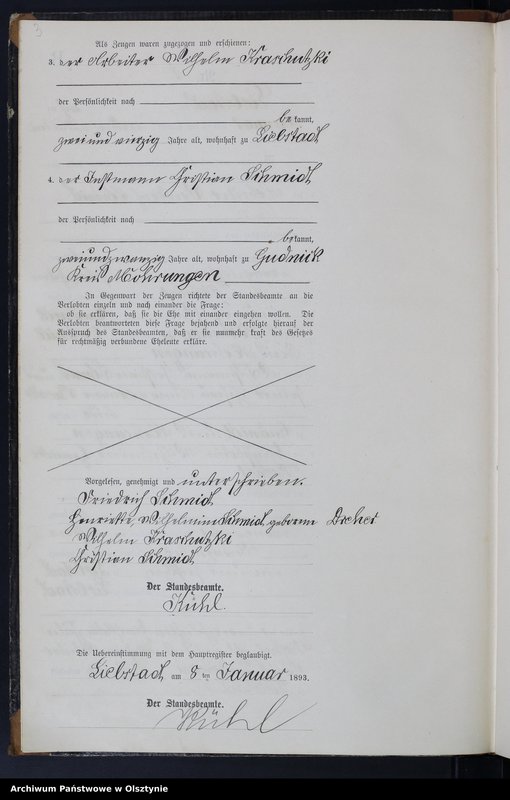 Als Zeugen waren zugezogen und erschienen:
3. der Arbeiter Wilhelm Kraschutzki
der Persönlichkeit nach
be kannt,
zweiundvierzig Jahre alt, wohnhaft zu Liebstadt
4. der Instmann Christian Schmidt
der Persönlichkeit nach
be kannt,
zweiundzwanzig Jahre alt, wohnhaft zu Gudnick
Kreis Mohrungen
In Gegenwart der Zeugen richtete der Standesbeamte an die
Verlobten einzeln und nach einander die Frage:
ob sie erklären, daß sie die Ehe mit einander eingehen wollen. Die
Verlobten beantworteten diese Frage bejahend und erfolgte hierauf der
Ausspruch des Standesbeamten, daß er sie nunmehr kraft des Gesetzes
für rechtmäßig verbundene Eheleute erkläre.
Vorgelesen, genehmigt und unterschrieben.
Friedrich Schmidt
Henriette, Wilhelmine Schmidt, geborene
Wilhelm Kraschutzki
Christian Schmidt
Der Standesbeamte.
Kühl.
Die Uebereinstimmung mit dem Hauptregister beglaubigt.
Liebstadt am 8 ten Januar 1893.
Der Standesbeamte.
Kühl
Archiwum Państwowe w Olsztynie